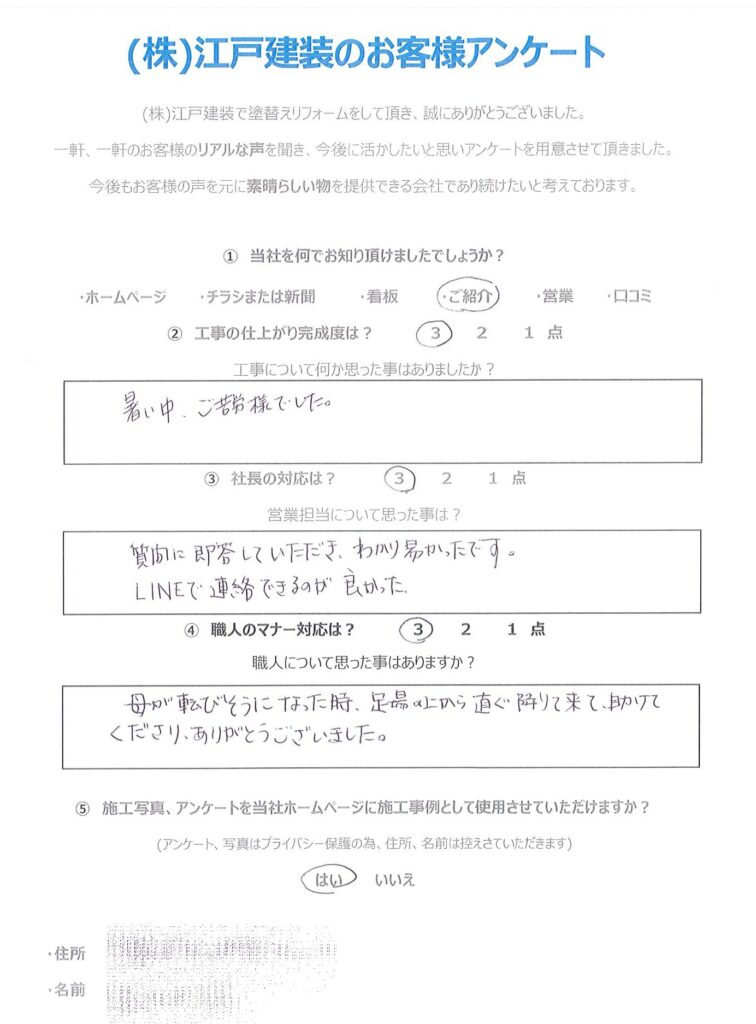 (株)江戸建装のお客様アンケート
(株)江戸建装で塗替えリフォームをして頂き、誠にありがとうございました。
一軒、一軒のお客様のリアルな声を聞き、今後に活かしたいと思いアンケートを用意させて頂きました。
今後もお客様の声を元に素晴らしい物を提供できる会社であり続けたいと考えております。
① 当社を何でお知り頂けましたでしょうか？
・ホームページ ・チラシまたは新聞 ・看板 ・ご紹介 ・営業 ・口コミ
② 工事の仕上がり完成度は？ 3 2 1 点
工事について何か思った事はありましたか？
暑い中、ご苦労様でした。
③ 社長の対応は？ 3 2 1 点
営業担当について思った事は？
質問に即答していただき、わかり易かったです。
LINEで連絡できるのが良かった.
④ 職人のマナー対応は？ 3 2 1 点
職人について思った事はありますか？
母が転びそうになった時、足場の上から直ぐ降りて来て、助けて
くださり、ありがとうございました。
⑤ 施工写真、アンケートを当社ホームページに施工事例として使用させていただけますか？
(アンケート、写真はプライバシー保護の為、住所、名前は控えさていただきます)
はい いいえ
・住所
・名前